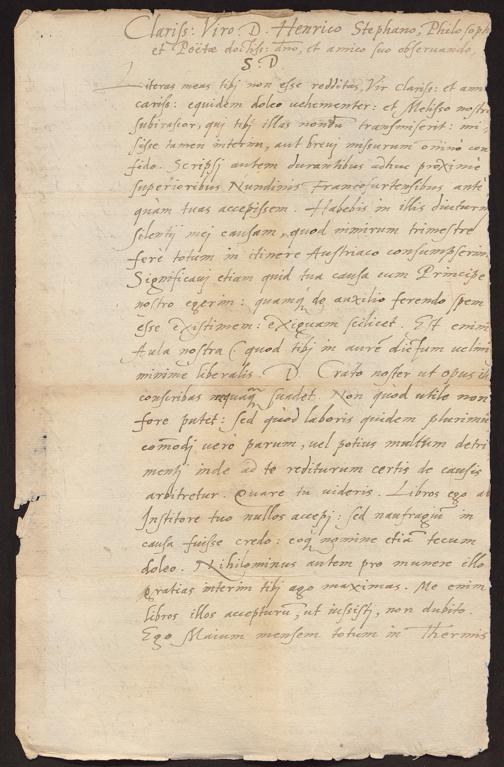 Clariss: Viro: D. Henrico Stephano, Philosoph
et Poëtæ doctiss: dno, et amico suo observando,
S. D
Literas meas tibj non esse redditas, Vir clariss: et ami
cariss: equidem doleo vehementer: et Melisso nostro
subirascor, qui tibj illas nondū transmiserit: mi-
sisse tamen interim, aut brevj missurum om̄ino con
fido. Scripsj autem durantibus adhuc proximè
superioribus Nundinis Francofurtensibus antè
quàm tuas accepissem. Habebis in illis diuturnj
silentij mej causam, quod nimirum trimestre
ferè totum in itinere Austriaco consumpserim
Significavj etiam quid tua causa cum Principe
nostro egerim: quamq́ de auxilio ferendo spem
esse existimem: exiguam scilicet. Est enim
Aula nostra (quod tibj in aurē dictum velim
minimè liberalis. D. Crato noster ut opus
conscribas nequaq̃ suadet. Non quòd utile non
fore putet: sed quòd laboris quidem plurimū
com̄odj verò parum, vel potius multum detri
mentj inde ad te rediturum certis de causis
arbitretur. Quare tu videris. Libros ego ab
Institore tuo nullos accepj: sed naufragiū in
causa fuisse credo: eoq́ nomine etiā tecum
doleo. Nihilominus autem pro munere illo
gratias interim tibj ago maximas. Me enim
libros illos accepturū, ut iussistj, non dubito.
Ego Maium mensem totum in Thermis